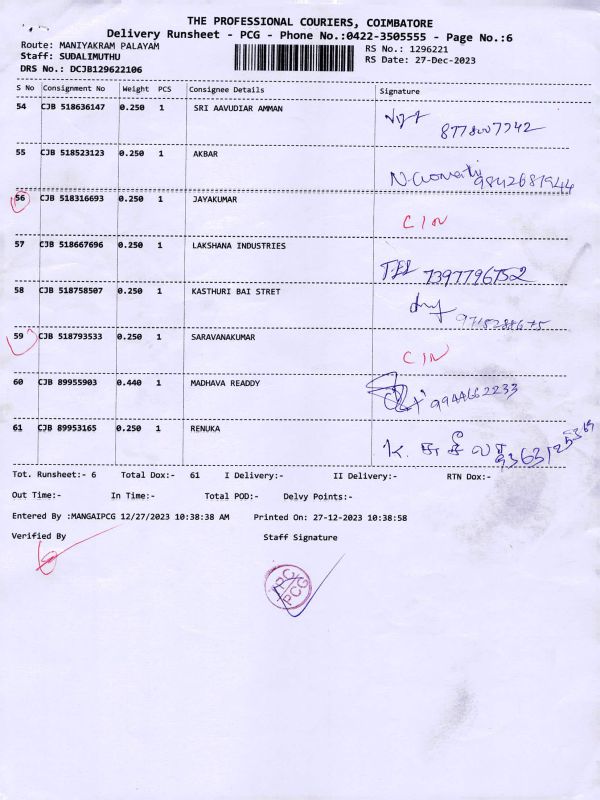 THE PROFESSIONAL COURIERS, COIMBATORE
Delivery Runsheet - PCG - Phone No.:0422-3505555 - Page No.:6
Route: MANIYAKRAM PALAYAM
RS No.: 1296221
Staff: SUDALIMUTHU
RS Date: 27-Dec-2023
DRS No.: DCJB129622106
S No Consignment No Weight PCS Consignee Details Signature
54 CJB 518636147 0.250 1 SRI AAVUDIAR AMMAN
8778007742
55 CJB 518523123 0.250 1 AKBAR
9842681944
56 CJB 518316693 0.250 1 JAYAKUMAR
C/N
57 CJB 518667696 0.250 1 LAKSHANA INDUSTRIES
7397796752
58 CJB 518758507 0.250 1 KASTHURI BAI STRET
59 CJB 518793533 0.250 1 SARAVANAKUMAR
C/N
60 CJB 89955903 0.440 1 MADHAVA READDY
9944662233
61 CJB 89953165 0.250 1 RENUKA
K. சுசீலா
Tot. Runsheet:- 6 Total Dox:- 61 I Delivery:- II Delivery:- RTN Dox:-
Out Time:- In Time:- Total POD:- Delvy Points:-
Entered By :MANGAIPCG 12/27/2023 10:38:38 AM Printed On: 27-12-2023 10:38:58
Verified By Staff Signature
TPC
PCG